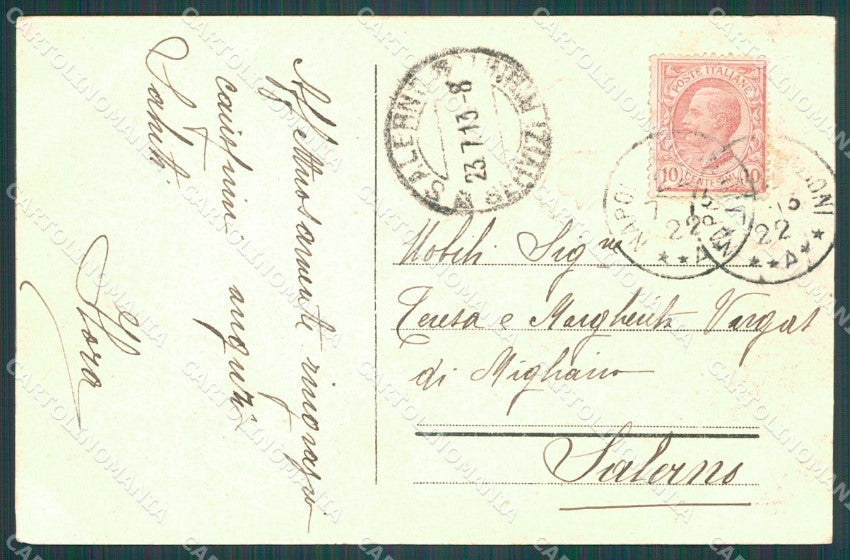 Affettuosamente ringrazio
carissimi auguri
Saluti
Flora
POSTE ITALIANE
10 CENT 10
SALERNO
23.7.13-8
NAPOLI
22
A
22
A
Nobili Sig.ne
Teresa e Margherita Vargas
di Migliano
Salerno
CARTOLINOMANIA